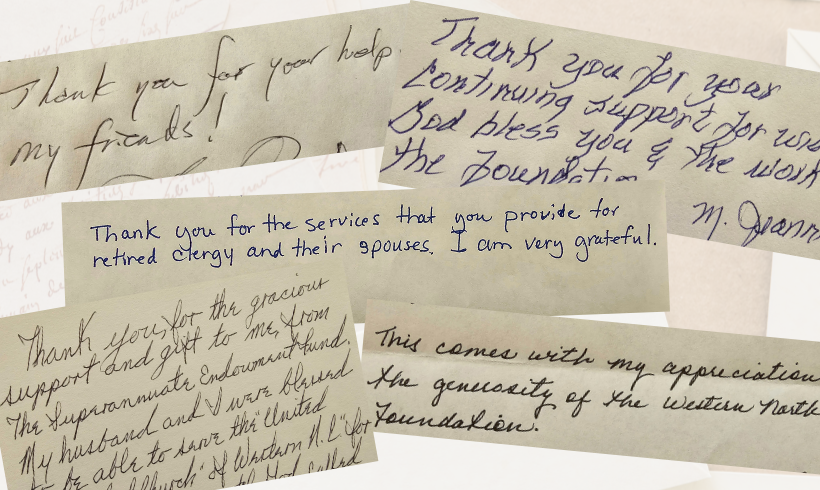 Thank you for your help.
my friends!
Thank you for your
continuing support for
God bless you & the work
the Foundation
M.
Thank you for the services that you provide for
retired clergy and their spouses. I am very grateful.
Thank you, for the gracious
support and gift to me, from
The Superannuate Endowment fund.
My husband and I were blessed
to be able to serve the "United
Church" of Western N.C." for
called
This comes with my appreciation
the generosity of the Western North
Foundation.